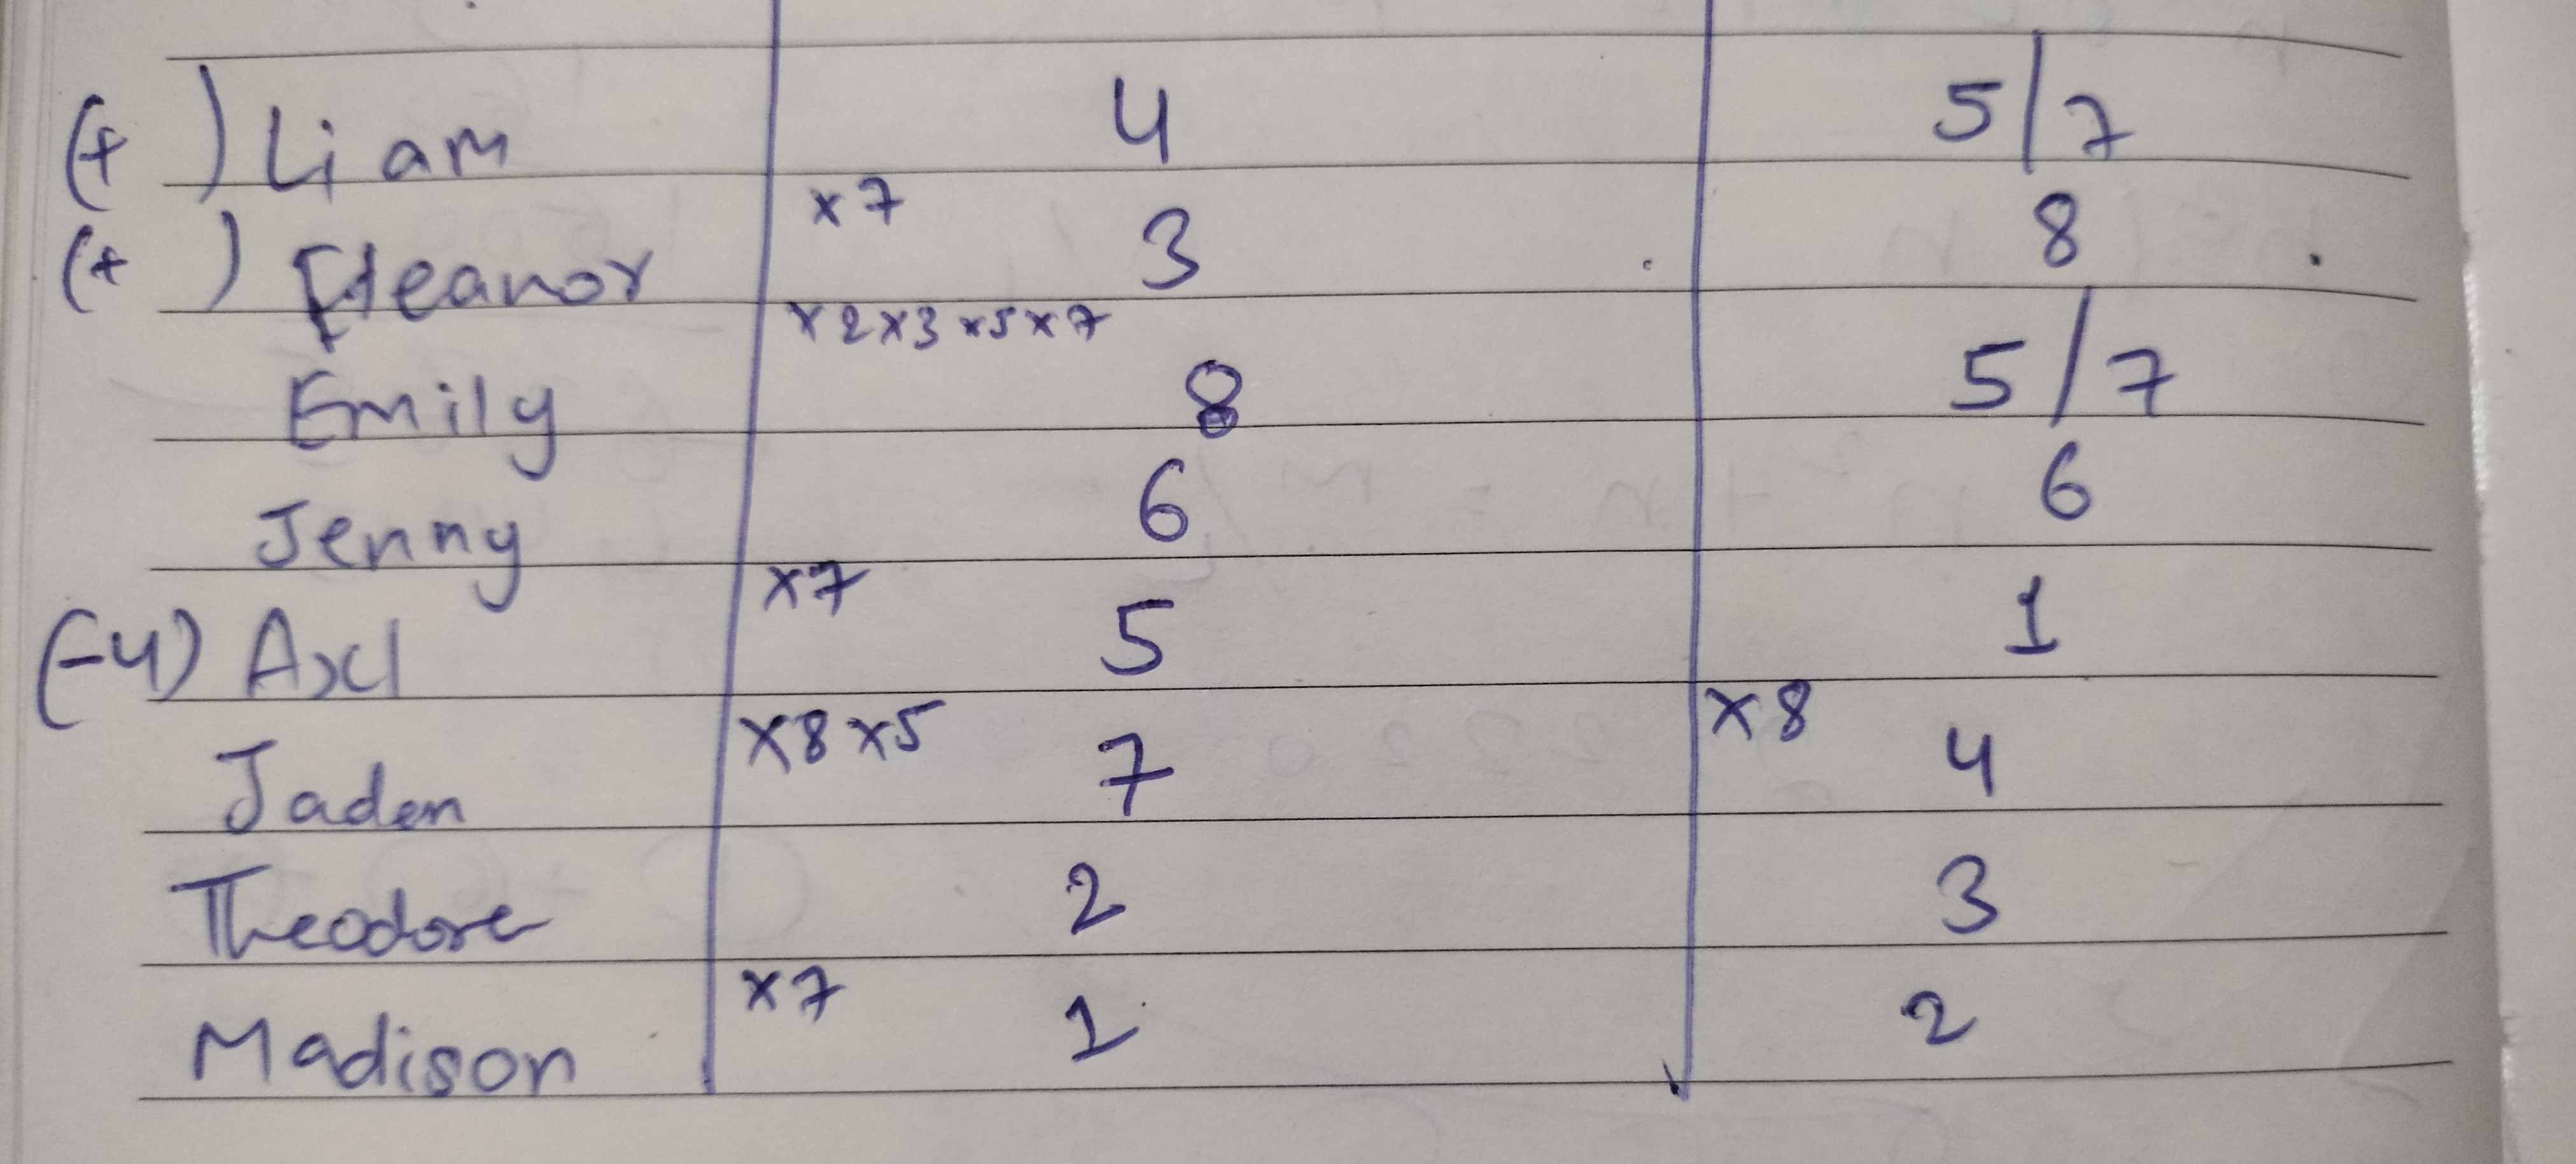 (+ ) Liam 4 5/7
(+ ) Eleanor x7 3 8
Emily x2x3x5x7 8 5/7
Jenny 6 6
(-4) Axl x7 5 1
Jaden x8x5 7 x8 4
Theodore 2 3
Madison x7 1 2